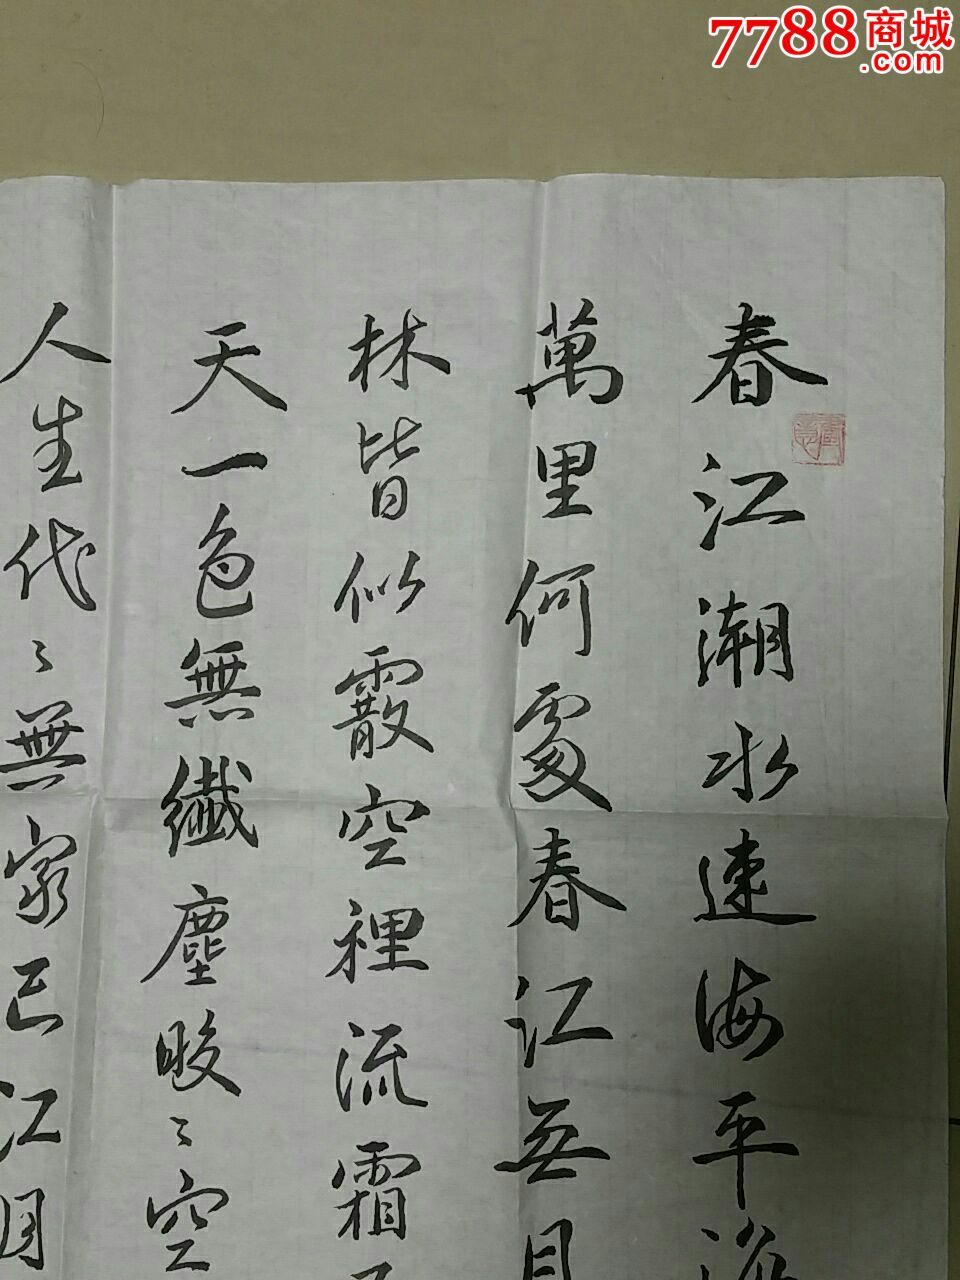 7788商城
.com
春江潮水連海平
萬里何處春江無月
林皆似霰空裡流霜不
天一色無纖塵皎〻空
人生代〻無窮已江月